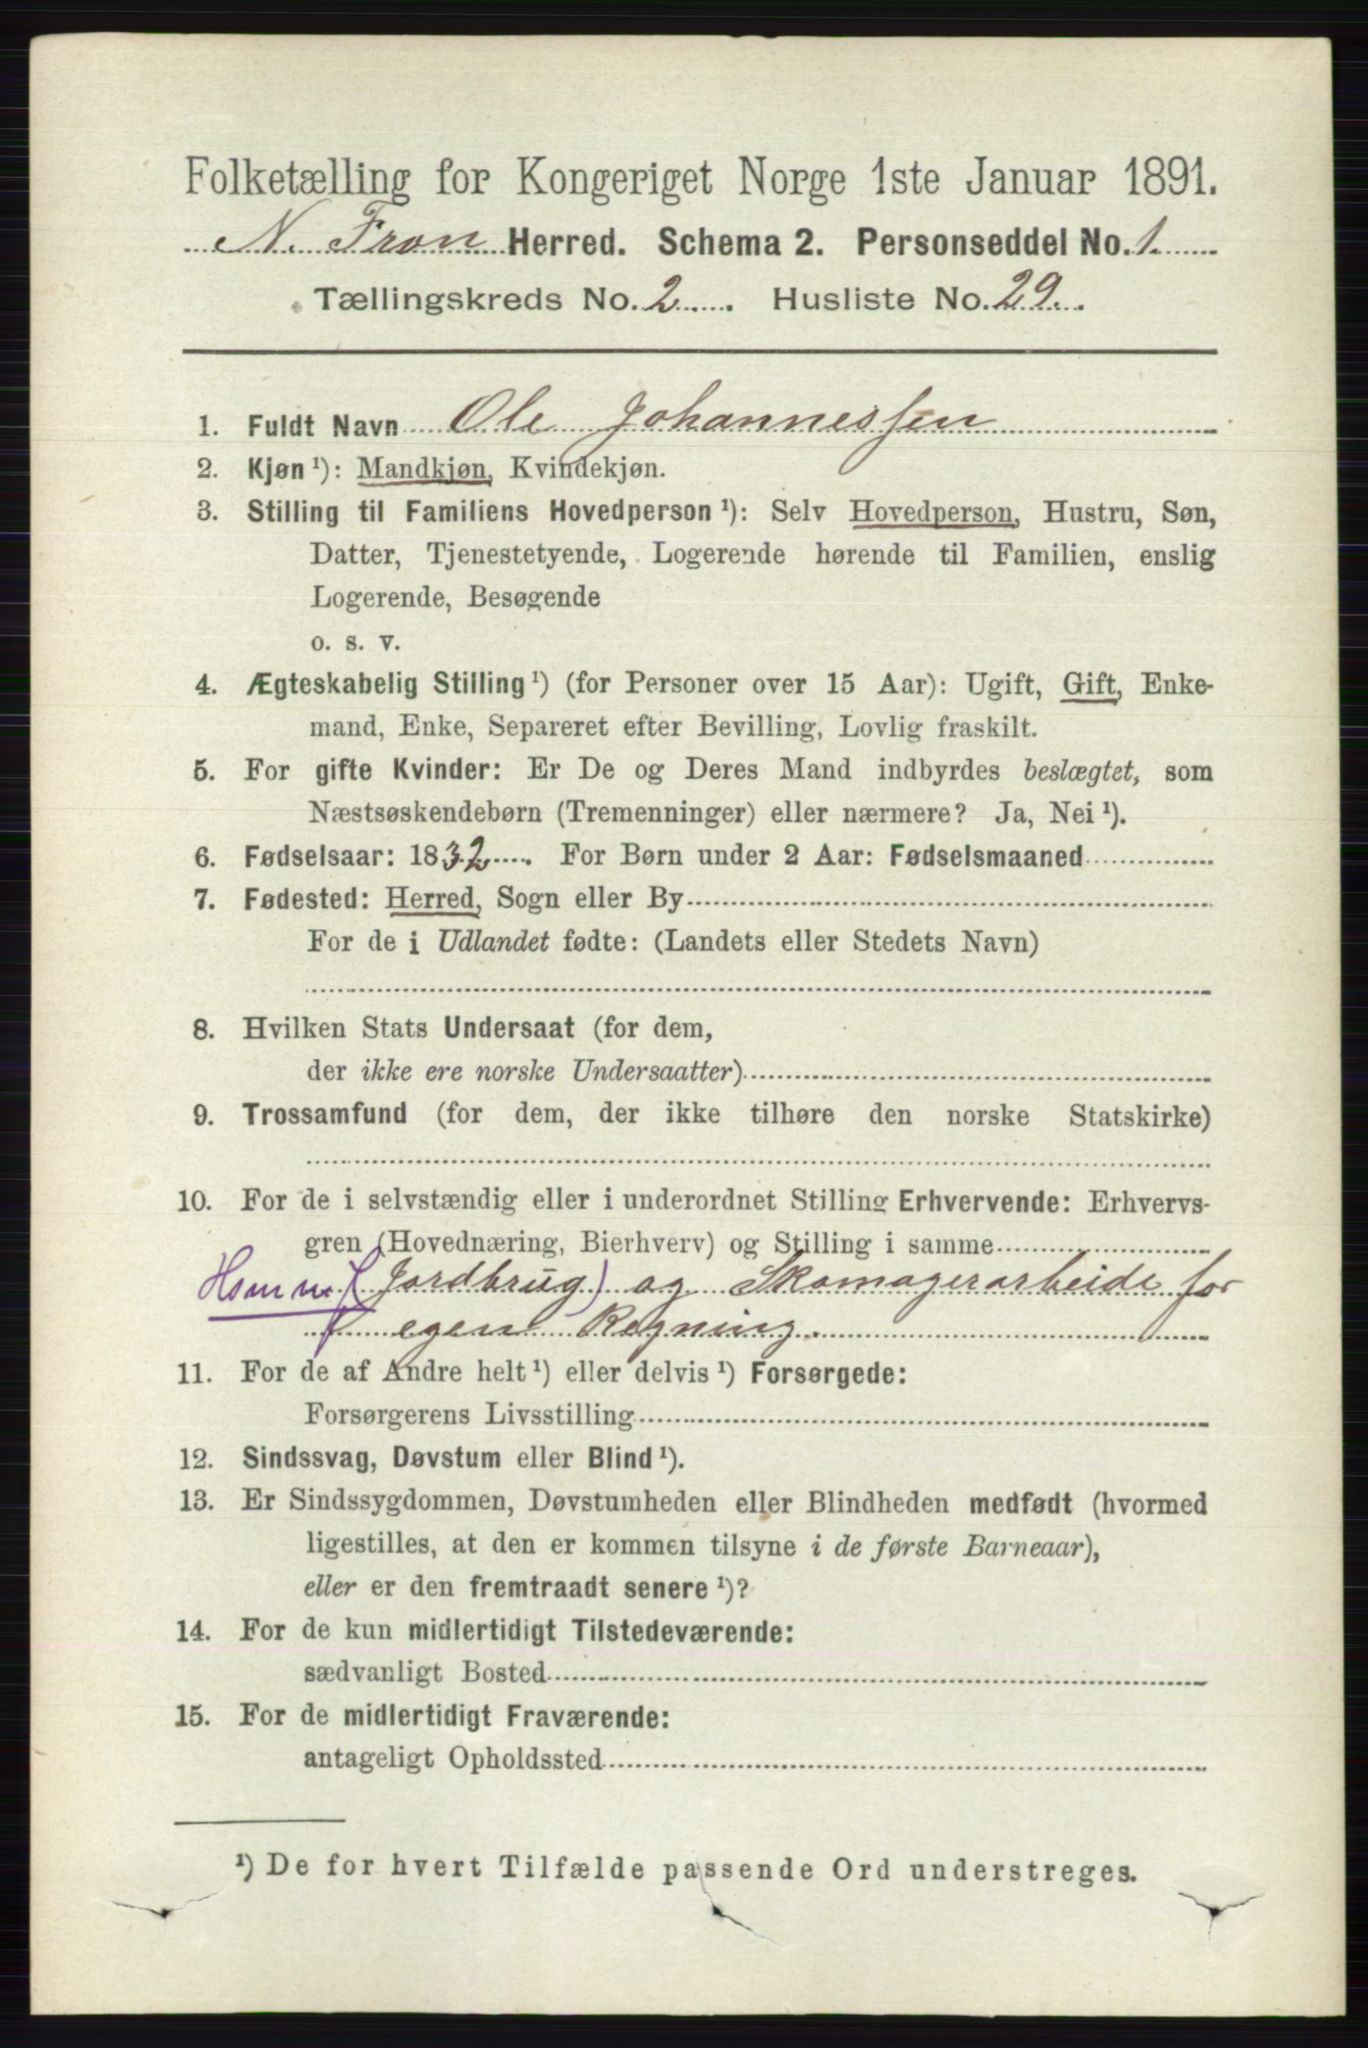 Folketælling for Kongeriget Norge 1ste Januar 1891.
N. Fron Herred. Schema 2. Personseddel No. 1.
Tællingskreds No. 2. Husliste No. 29.
1. Fuldt Navn Ole Johannessen
2. Kjøn ¹): Mandkjøn, Kvindekjøn.
3. Stilling til Familiens Hovedperson ¹): Selv Hovedperson, Hustru, Søn,
Datter, Tjenestetyende, Logerende hørende til Familien, enslig
Logerende, Besøgende
o. s. v.
4. Ægteskabelig Stilling ¹) (for Personer over 15 Aar): Ugift, Gift, Enke-
mand, Enke, Separeret efter Bevilling, Lovlig fraskilt.
5. For gifte Kvinder: Er De og Deres Mand indbyrdes beslægtet, som
Næstsøskendebørn (Tremenninger) eller nærmere? Ja, Nei ¹).
6. Fødselsaar: 1832. For Børn under 2 Aar: Fødselsmaaned
7. Fødested: Herred, Sogn eller By
For de i Udlandet fødte: (Landets eller Stedets Navn)
8. Hvilken Stats Undersaat (for dem,
der ikke ere norske Undersaatter)
9. Trossamfund (for dem, der ikke tilhøre den norske Statskirke)
10. For de i selvstændig eller i underordnet Stilling Erhvervende: Erhvervs-
gren (Hovednæring, Bierhverv) og Stilling i samme
(Jordbrug) og Skomagerarbeide for
egen Regning.
11. For de af Andre helt ¹) eller delvis ¹) Forsørgede:
Forsørgerens Livsstilling
12. Sindssvag, Døvstum eller Blind ¹).
13. Er Sindssygdommen, Døvstumheden eller Blindheden medfødt (hvormed
ligestilles, at den er kommen tilsyne i de første Barneaar),
eller er den fremtraadt senere ¹)?
14. For de kun midlertidigt Tilstedeværende:
sædvanligt Bosted
15. For de midlertidigt Fraværende:
antageligt Opholdssted
¹) De for hvert Tilfælde passende Ord understreges.